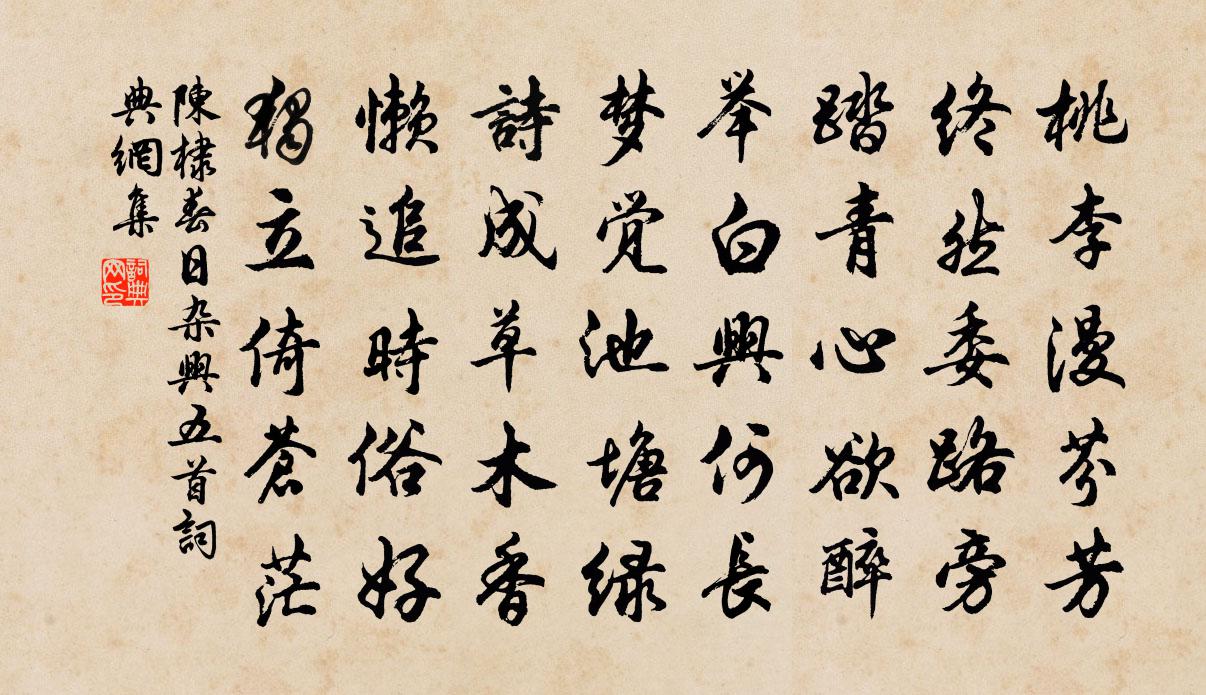 桃李漫芬芳
终然委路旁
踏青心欲醉
举白兴何長
梦觉池塘绿
詩成草木香
懒追時俗好
獨立倚蒼茫
陳棣春日杂興五首詞
典網集
詞典网印